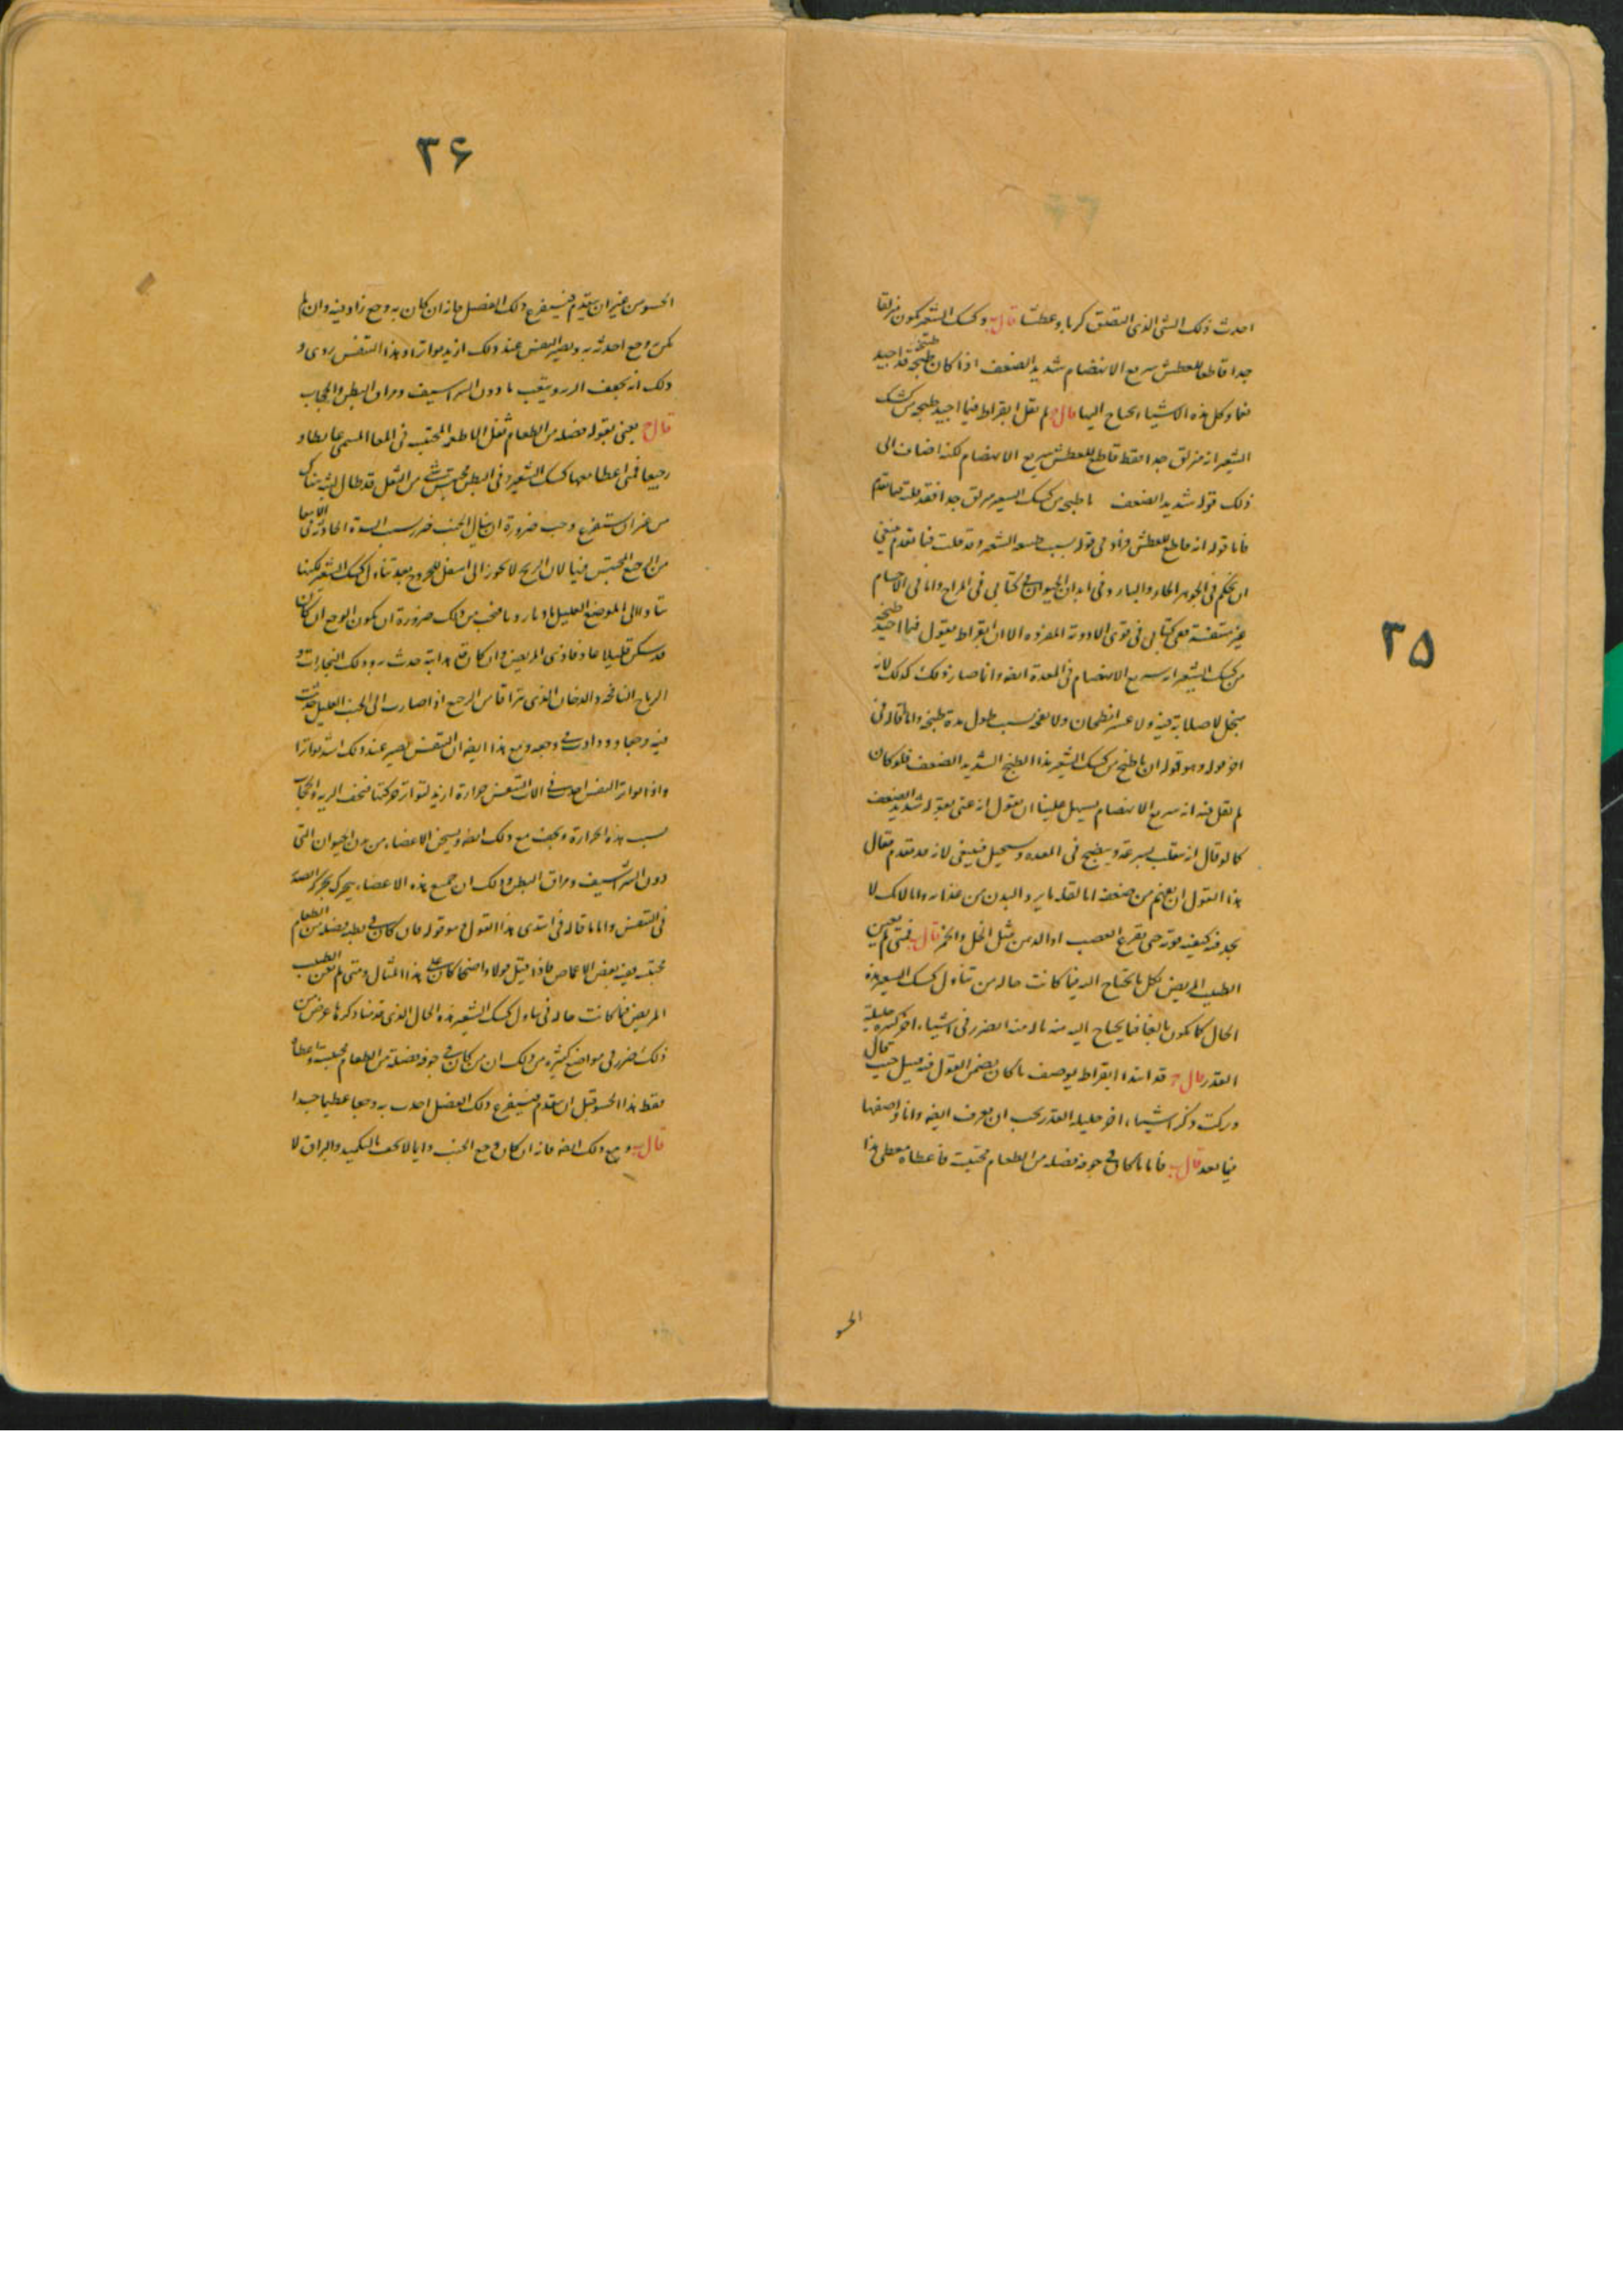 ٣۵
احدث ذلك الشى الذى التصق كربا وعطشا قال ب وكشك الشعير يكون مزلقا
جدا قاطعا للعطش سريع الانهضام شديد الضعف اذا كان طبخه قد اجيد
نعما وكل هذه الاشياء يحتاج اليها قال ج لم يقل ابقراط فيما اجيد طبخه من كشك
الشعير انه مزلق جدا فقط قاطع للعطش سريع الانهضام لكنه اضاف الى
ذلك قوله شديد الضعف ما طبخ من كشك الشعير مزلق جدا فقد قلته فيما تقدم
فاما قوله انه قاطع للعطش بسبب الشعير وقد قلت فيما تقدم
فى الجوهر الحار والبارد وفى ابدان الحيوان كتابى فى المزاج واما فى الاجسام
غير متنفسة ففى كتابى فى قوى الادوية المفردة الا ان ابقراط يقول فيما اجيد طبخه
من كشك الشعير انه سريع الانهضام فى المعدة ايضه وانما صار ذلك كذلك لانه
لا صلابة فيه ولا عسر انطحان ولا نفخ بسبب طول مدة طبخه واما قاله فى
اخر قوله وهو قوله ان ما طبخ من كشك الشعير هذا الطبخ الشديد الضعف فلو كان
لم يقل فيه انه سريع الانهضام يسهل علينا ان نقول انه عنى بقوله شديد الضعف
كما لو قال انه ينقلب بسرعة وينضج فى المعده ويستحيل فينبغى لانه قد تقدم فقال
هذا القول ان يفهم من ضعفه اما لقلة ما يرد البدن من غذائه واما لانك لا
تجد فيه كيفية قوية حتى يقرع العصب مثل الخل والخمر قال ب فمتى لم يعن
الطبيب المريض بكل ما يحتاج اليه فيما كانت حاله من تناول كشك الشعير هذه
الحال كما يكون بالغا فيما يحتاج اليه منه ناله منه الضرر فى اشياء اخر كثيره جليلة
القدر قال ج قد ابتدا ابقراط بوصف ما كان يضمن القول فيه قبيل حيث قال
وتركت ذكر اشياء اخر جليلة القدر يجب ان يعرف ايضه وانا واصفها
فيما بعد قال ب فاما ما كان فى جوفه فضلة من الطعام محتبسة فاعطاه معطى هذا
الحسو
٣۶
الحسو من غير ان يتقدم فيستفرغ ذلك الفضل فانه ان كان به وجع زاد فيه وان لم
يكن به وجع احدثه به ويصير التنفس عند ذلك ازيد تواترا وهذا التنفس ردى و
ذلك انه يجفف الريه ويتعب ما دون الشراسيف ومراق البطن والحجاب
قال ج يعنى بقوله فضلة من الطعام ثفل الاطعمة المحتبس فى المعا المسمى غائطا و
رجيعا فمتى اعطا معها كشك الشعير وفى البطن محتبس شى من الثفل قد طال لبثه هناك
من غير ان يستفرغ وجب ضرورة ان ينال الجنب ضرر بسبب السدة الحادثة فى الامعا
من الرجيع المحتبس فيها لان الريح لا تجوز الى اسفل للخروج بعد تناول كشك الشعير لكنها
الى الموضع العليل من ذلك ضرورة ان يكون الوجع ان كان
قد سكن قليلا عاد فاذى المريض وان كان حدث به وذلك البخارات و
الرياح النافخه والدخان الذى يتراقا من الرجع اذا صارت الى الجنب العليل حدثت
فيه وجعا وزادت فى وجعه ومع هذا ايضه ان التنفس يصير عند ذلك اشد تواترا
واذا تواتر النفس احدث فى الات التنفس حرارة ازيد لتواتر حركتها فتجف الريه والحجاب
بسبب هذه الحرارة ويجف مع ذلك ايضه ويسخن الاعضاء من بدن الحيوان التى
دون الشراسيف ومراق البطن وذلك ان جميع هذه الاعضاء يتحرك
فى التنفس واما ما قاله فى ابتدى هذا القول وهو قوله فان كان فى بطنه فضلة من الطعام
محتبسة ففيه بعض الاغماض فاذا قيل قولا واضحا كان على هذا المثال ومتى لم يعن الطبيب
المريض فيما كانت حاله فى تناول كشك الشعير هذه الحال الذى قدمنا ذكرها عرض من
ذلك ضرر فى مواضع كثيره من ذلك ان من كان فى جوفه فضلة من الطعام محتبسة واعطاه
فقط هذا الحسو قبل ان يتقدم فيستفرغ ذلك الفضل احدث به وجعا عظيما جدا
قال ب ومع ذلك ايضه فانه ان كان وجع الجنب دايما لا يخف بالتكميد والبزاق لا